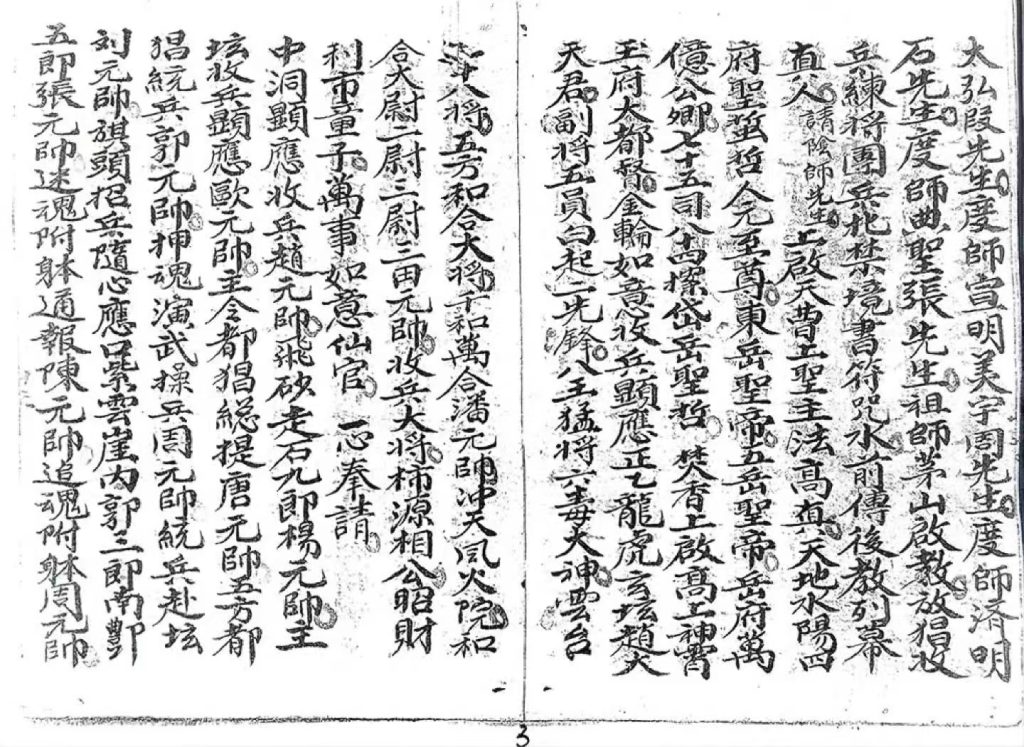 太弘叚先生度師宣明美宇周先生度師済明
石先生度師典聖張先生祖師茅山啟教放猖收
兵練将團兵札禁境書符咒水前傳後教列幕
真人請陰師先生上啟天曹上聖主法高真天地水陽四
府聖聖哲人元至尊東岳聖帝五岳聖帝岳府萬
億公卿七十五司八十四椂岱岳聖哲焚香上啟高上神霄
王府大都督金輪如意收兵顯應正乙龍虎玄坛趙大
天君副将五員白起二先鋒八王猛将六毒大神雲台
八将五方和合大将千和萬合潘元帥冲天風火院和
合大尉二尉三尉三田元帥收兵大将柿源相公昭財
利市童子萬事如意仙官一心奉請
中洞顯應收兵趙元帥飛砂走石九郎楊元帥主
坛收兵顯應歐元帥主令都猖総提唐元帥五方都
猖統兵郭元帥押魂演武操兵周元帥統兵赴坛
刘元帥旗頭招兵隨心應口紫雲崖内郭三郎南酆
五郎張元帥迷魂附躰通報陳元帥追魂附躰周元帥
3